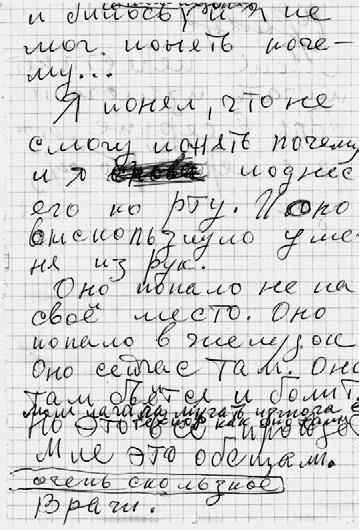 и билось, и я не
мог понять поче-
му...
Я понял, что не
смогу понять почему
и я снова поднёс
его ко рту. И оно
выскользнуло у ме-
ня из рук.
Оно попало не на
своё место. Оно
попало в желудок
Оно сейчас там. Оно
там бьётся и болит.
Но это всё пройдёт.
Мне это обещали.
очень скользкое
Врачи.